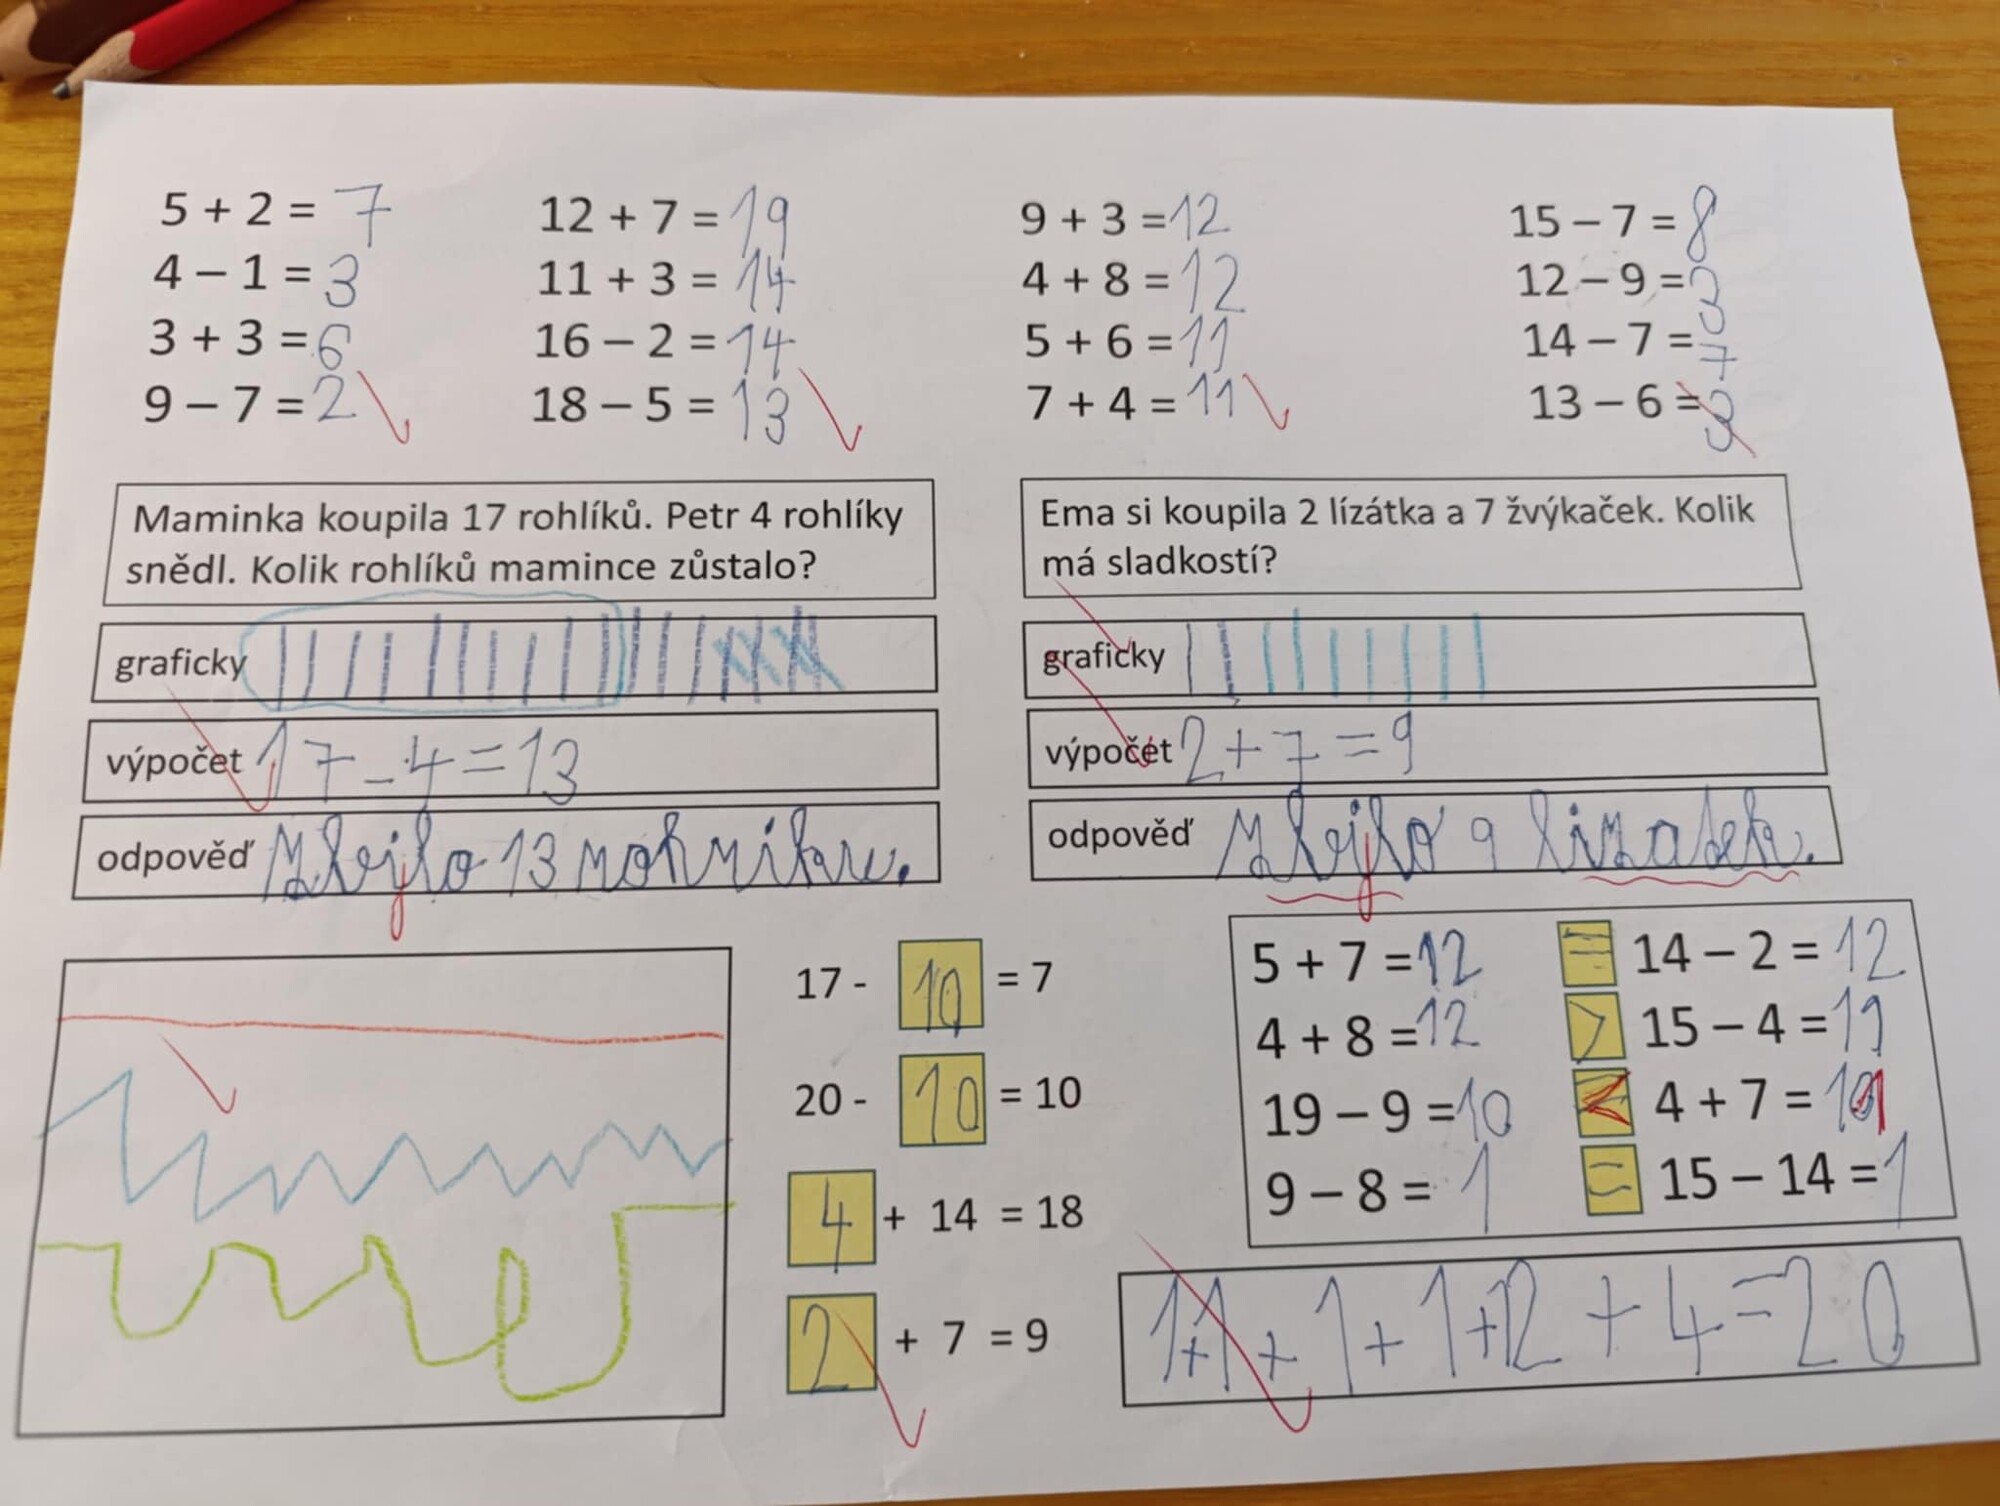 5 + 2 = 7
4 – 1 = 3
3 + 3 = 6
9 – 7 = 2
12 + 7 = 19
11 + 3 = 14
16 – 2 = 14
18 – 5 = 13
9 + 3 = 12
4 + 8 = 12
5 + 6 = 11
7 + 4 = 11
15 – 7 = 8
12 – 9 = 3
14 – 7 = 7
13 – 6 = 3
Maminka koupila 17 rohlíků. Petr 4 rohlíky
snědl. Kolik rohlíků mamince zůstalo?
graficky
výpočet 17 - 4 = 13
odpověď Zbilo 13 rohníku.
Ema si koupila 2 lízátka a 7 žvýkaček. Kolik
má sladkostí?
graficky
výpočet 2 + 7 = 9
odpověď 9 lizatek.
17 - 10 = 7
20 - 10 = 10
4 + 14 = 18
2 + 7 = 9
5 + 7 = 12 = 14 – 2 = 12
4 + 8 = 12 > 15 – 4 = 11
19 – 9 = 10 < 4 + 7 = 11
9 – 8 = 1 = 15 – 14 = 1
1+1+1+1+12+4=20